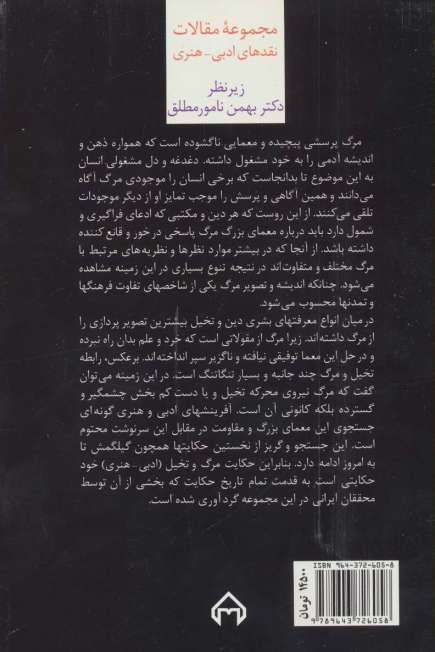 مجموعهٔ مقالات
نقدهای ادبی - هنری
زیرنظر
دکتر بهمن نامور مطلق
مرگ پرسشی پیچیده و معمایی ناگشوده است که همواره ذهن و
اندیشه آدمی را به خود مشغول داشته. دغدغه و دل مشغولی انسان
به این موضوع تا بدانجاست که برخی انسان را موجودی مرگ آگاه
می‌دانند و همین آگاهی و پرسش را موجب تمایز او از دیگر موجودات
تلقی می‌کنند. از این روست که هر دین و مکتبی که ادعای فراگیری و
شمول دارد باید درباره معمای بزرگ مرگ پاسخی در خور و قانع کننده
داشته باشد. از آنجا که در بیشتر موارد نظرها و نظریه‌های مرتبط با
مرگ مختلف و متفاوت‌اند در نتیجه تنوع بسیاری در این زمینه مشاهده
می‌شود. چنانکه اندیشه و تصویر مرگ یکی از شاخصهای تفاوت فرهنگها
و تمدنها محسوب می‌شود.
در میان انواع معرفتهای بشری دین و تخیل بیشترین تصویر پردازی را
از مرگ داشته‌اند. زیرا مرگ از مقولاتی است که خرد و علم بدان راه نبرده
و در حل این معما توفیقی نیافته و ناگزیر سپر انداخته‌اند. برعکس، رابطه
تخیل و مرگ چند جانبه و بسیار تنگاتنگ است. در این زمینه می‌توان
گفت که مرگ نیروی محرکه تخیل و یا دست کم بخش چشمگیر و
گسترده بلکه کانونی آن است. آفرینشهای ادبی و هنری گونه‌ای
جستجوی این معمای بزرگ و مقاومت در مقابل این سرنوشت محتوم
است. این جستجو و گریز از نخستین حکایتها همچون گیلگمش تا
به امروز ادامه دارد. بنابراین حکایت مرگ و تخیل (ادبی - هنری) خود
حکایتی است به قدمت تمام تاریخ حکایت که بخشی از آن توسط
محققان ایرانی در این مجموعه گرد آوری شده است.
ISBN 964-372-605-8
9 789643 726058
۱۴۵۰۰ تومان